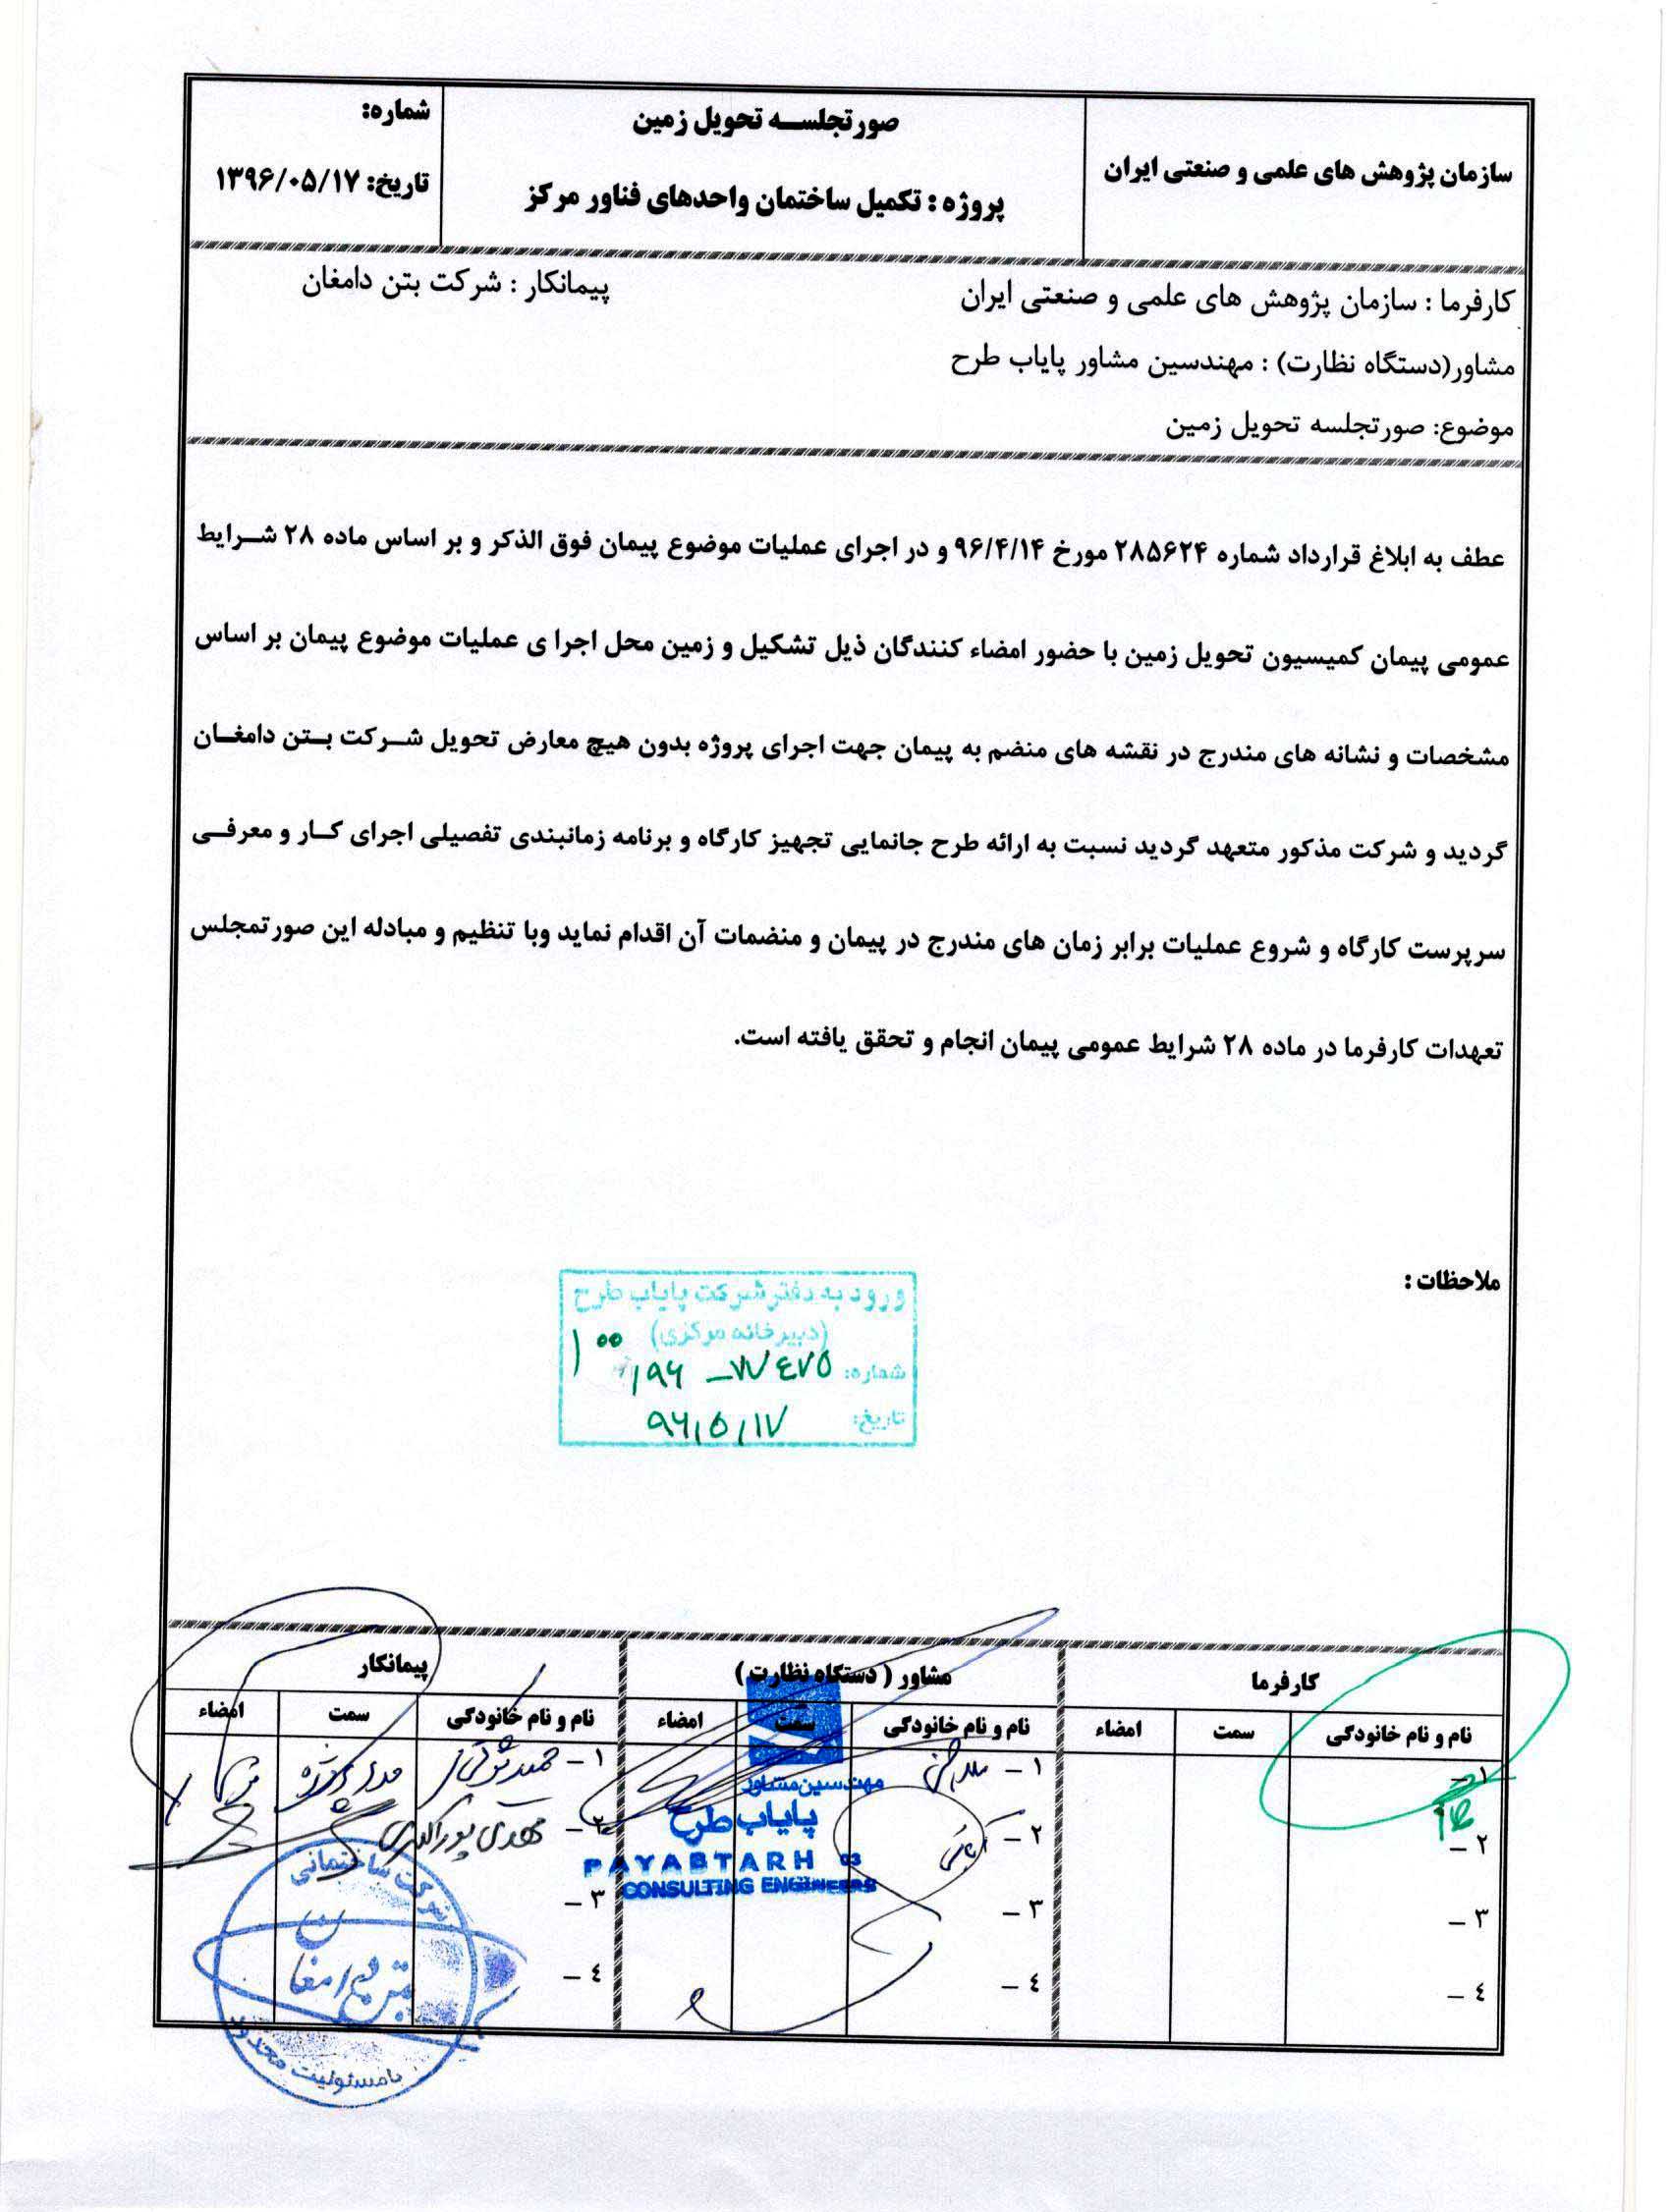 سازمان پژوهش های علمی و صنعتی ایران
صورتجلسه تحویل زمین
پروژه : تکمیل ساختمان واحدهای فناور مرکز
شماره:
تاریخ: ۱۳۹۶/۰۵/۱۷
کارفرما : سازمان پژوهش های علمی و صنعتی ایران
پیمانکار : شرکت بتن دامغان
مشاور(دستگاه نظارت) : مهندسین مشاور پایاب طرح
موضوع: صورتجلسه تحویل زمین
عطف به ابلاغ قرارداد شماره ۲۸۵۶۲۴ مورخ ۹۶/۴/۱۴ و در اجرای عملیات موضوع پیمان فوق الذکر و بر اساس ماده ۲۸ شرایط
عمومی پیمان کمیسیون تحویل زمین با حضور امضاء کنندگان ذیل تشکیل و زمین محل اجرا ی عملیات موضوع پیمان بر اساس
مشخصات و نشانه های مندرج در نقشه های منضم به پیمان جهت اجرای پروژه بدون هیچ معارض تحویل شرکت بتن دامغان
گردید و شرکت مذکور متعهد گردید نسبت به ارائه طرح جانمایی تجهیز کارگاه و برنامه زمانبندی تفصیلی اجرای کار و معرفی
سرپرست کارگاه و شروع عملیات برابر زمان های مندرج در پیمان و منضمات آن اقدام نماید وبا تنظیم و مبادله این صورتمجلس
تعهدات کارفرما در ماده ۲۸ شرایط عمومی پیمان انجام و تحقق یافته است.
ملاحظات :
ورود به دفتر شرکت پایاب طرح
(دبیرخانه مرکزی)
شماره:
تاریخ: ۹۶/۵/۱۷
کارفرما
مشاور ( دستگاه نظارت )
پیمانکار
نام و نام خانودگی سمت امضاء
نام و نام خانودگی سمت امضاء
نام و نام خانودگی سمت امضاء
۱ –
۱ –
۱ –
۲ –
۲ –
۲ – مهدی پوراکبری
۳ –
۳ –
۳ –
٤ –
٤ –
٤ –
مهندسین مشاور
پایاب طرح
PAYABTARH
CONSULTING ENGINEERS
شرکت ساختمانی
بتن دامغان
بامسئولیت محدود